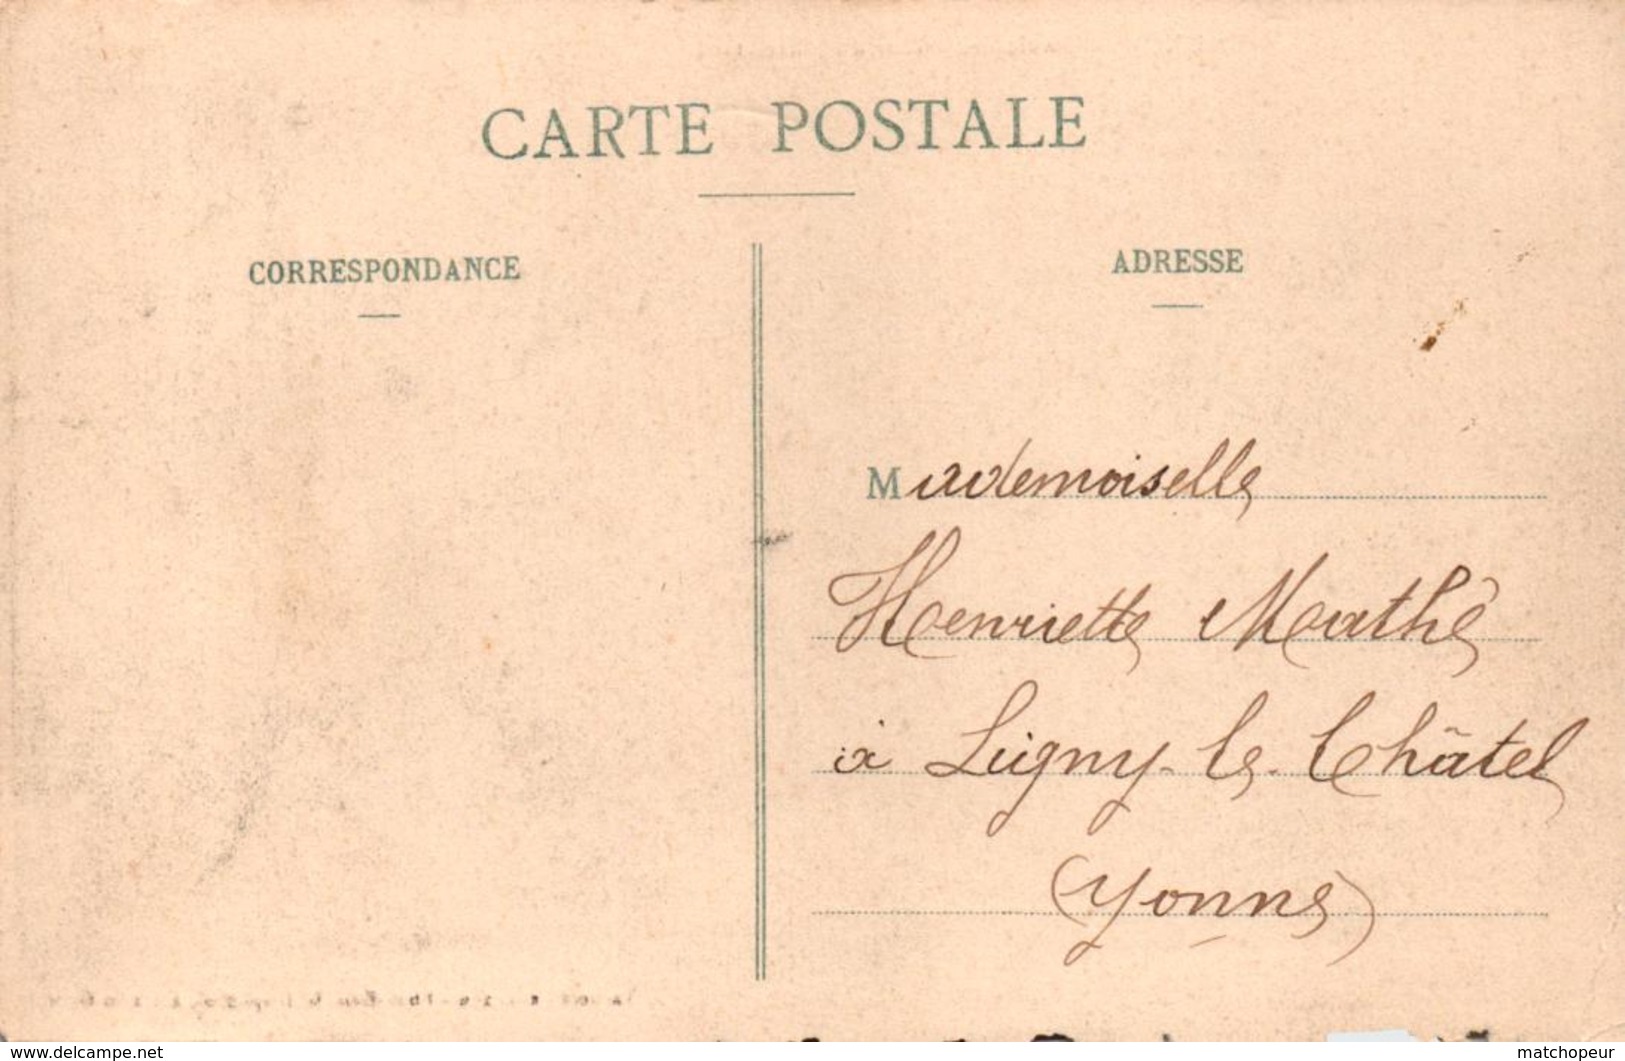 CARTE POSTALE
CORRESPONDANCE
ADRESSE
Mademoiselle
Henriette Mathé
à Ligny-le-Châtel
(Yonne)
www.delcampe.net
matchopeur